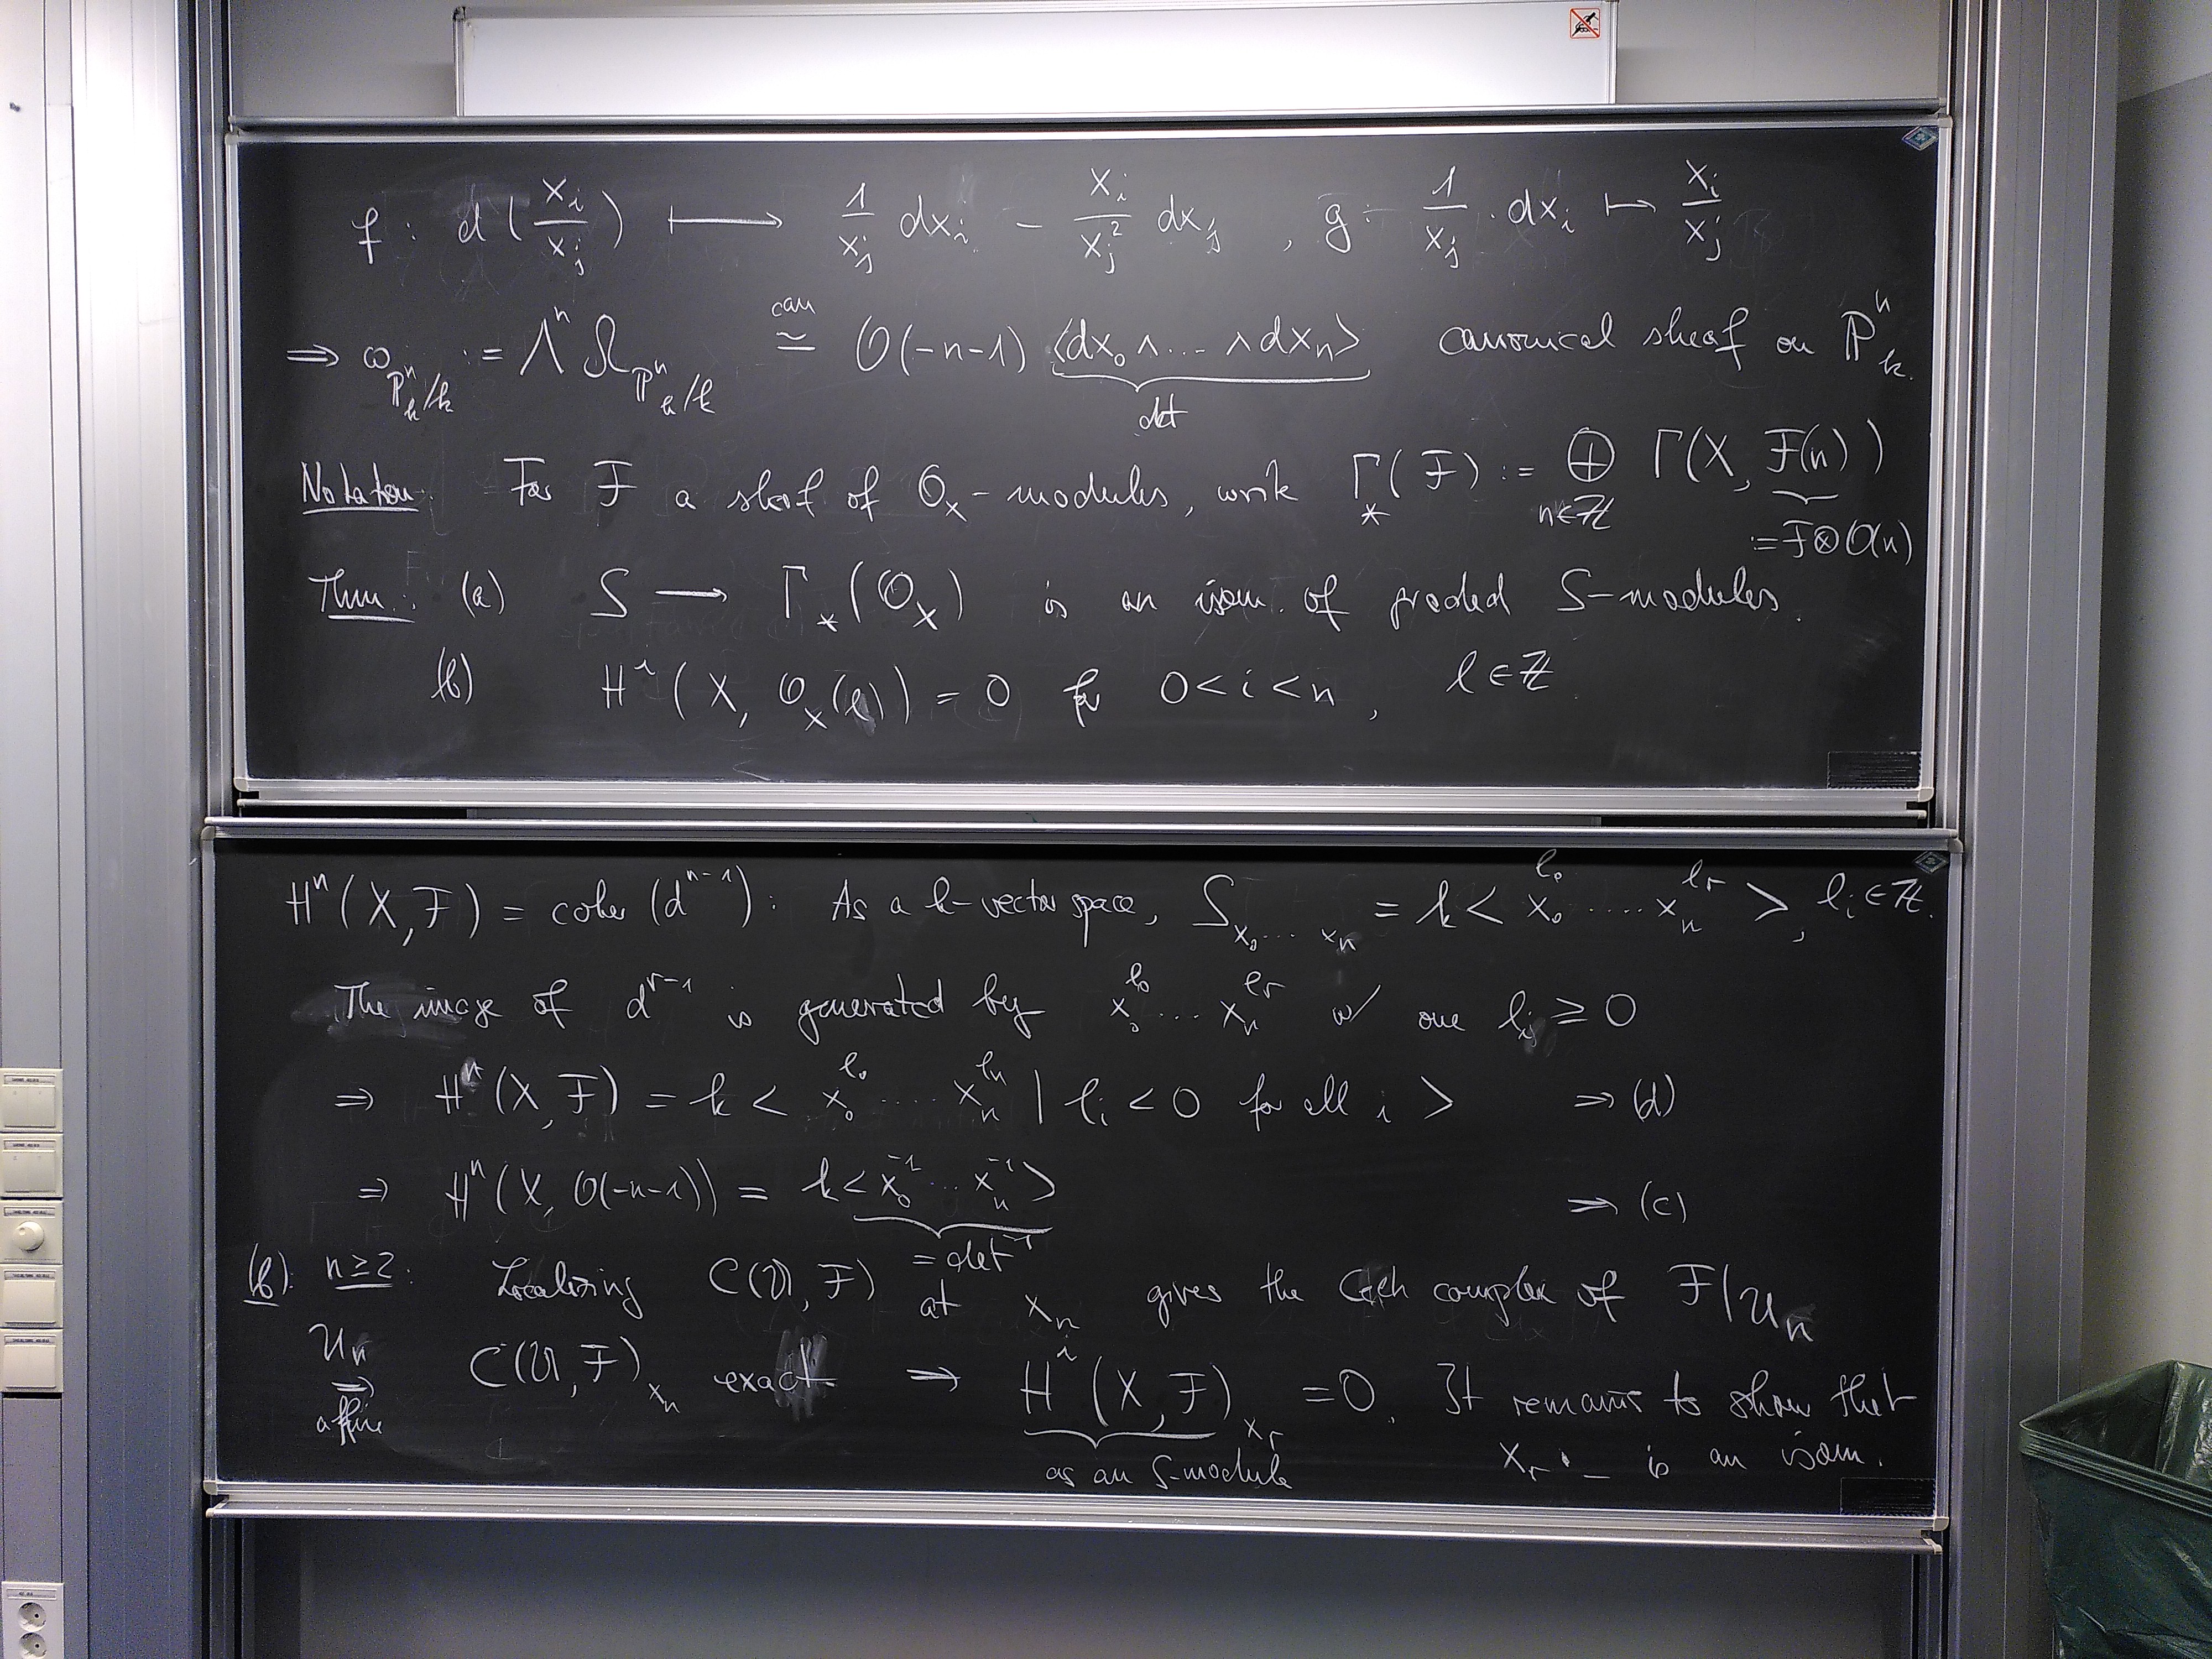 f : d(x_i/x_j) ⟼ 1/x_j dx_i − x_i/x_j² dx_j , g : 1/x_j · dx_i ↦ x_i/x_j
⟹ ω_{ℙ^n_k/k} := Λ^n Ω_{ℙ^n_k/k} ≃^{can} O(-n-1) <dx_0 ∧ ... ∧ dx_n> canonical sheaf on ℙ^n_k.
det
Notation: For F a sheaf of O_X-modules, write Γ_*(F) := ⊕_{n∈ℤ} Γ(X, F(n))
:= F⊗O(n)
Thm.: (a) S ⟶ Γ_*(O_X) is an isom. of graded S-modules.
(b) H^i(X, O_X(l)) = 0 for 0 < i < n, l ∈ ℤ.
H^n(X, F) = coker(d^{n-1}): As a k-vector space, S_{x_0 .... x_n} = k < x_0^{l_0} .... x_n^{l_r} >, l_i ∈ ℤ.
The image of d^{r-1} is generated by x_0^{l_0} ... x_n^{l_r} w/ one l_i ≥ 0
⇒ H^n(X, F) = k < x_0^{l_0} .... x_n^{l_n} | l_i < 0 for all i > ⇒ (d)
⇒ H^n(X, O(-n-1)) = k < x_0^{-1} ... x_n^{-1} > ⇒ (c)
= det^{-1}
(b): n ≥ 2: Localizing C(𝔘, F) at x_n gives the Cech complex of F|U_n
U_n affine ⇒ C(𝔘, F)_{x_n} exact ⇒ H^i(X, F)_{x_r} = 0. It remains to show that
as an S-module x_r · _ is an isom.